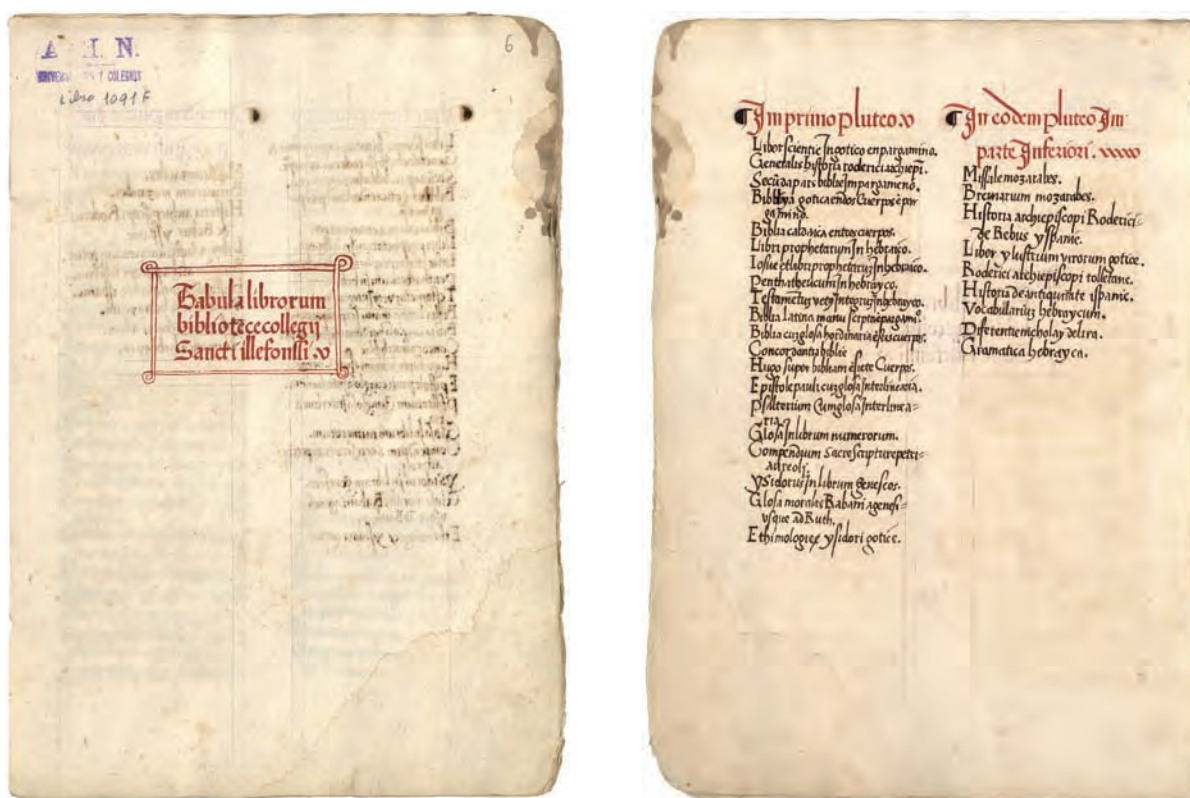 A. H. N.
UNIVERSIDADES Y COLEGIOS
Libro 1091 F
6
Tabula librorum
bibliotece collegij
Sancti illefonssi .v
Im primo pluteo .v
Liber scientie In gotico en pargamino.
Generalis historia roderici archiepi.
Secūda pars biblie Im pargameno.
Bibliya gotica en dos Cuerpos ē par
gamino.
Biblia caldaica en tres cuerpos.
Libri prophetarum In hebraico.
Iosue et libri prophetarū In hebraico.
Penthatheucum In hebrayco.
Testamētus vetus Integrus In hebrayco.
Biblia Latina manu scripta e pargamio.
Biblia cū glosa hordinaria ē seis cuerpos.
Concordantia biblie
Hugo super bibliam ē siete Cuerpos.
Epistole pauli cū glosa Interlinearia.
Psalterium Cum glosa Interlinea=
ria.
Glosa In librum numerorum.
Compendium sacre scripture petri=
aureoli.
ysidorus In librum genescos.
Glosa moralis Rabani a genesi=
vsque ad Ruth.
Ethimologie ysidori gotice.
In eodem pluteo Im
parte Inferiori.
Missale mozarabes.
Breuiarium mozarabes.
Historia archiepiscopi Roderici=
de Rebus yspanie.
Liber ylustrium virorum gotice.
Roderici archiepiscopi tolletane.
Historia de antiquitate ispanie.
Vocabularius hebraycum.
Diferentie nicholay de lira.
Gramatica hebrayca.